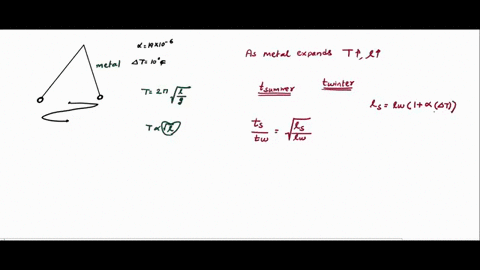 α = 19×10⁻⁶
metal
ΔT = 10°F
T = 2π √(l/g)
T α √l
As metal expands T↑, l↑
tsummer
twinter
ls = lw (1 + α (ΔT))
ts/tw = √(ls/lw)